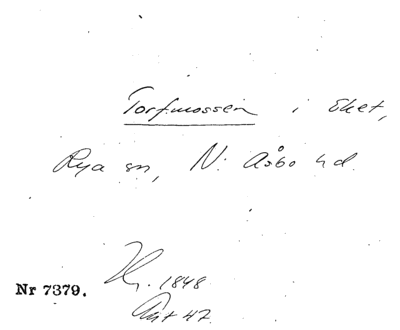 Torfmossen i Eket,
Rya sn, N. Åsbo hd.
1848
Nr 7379.
47